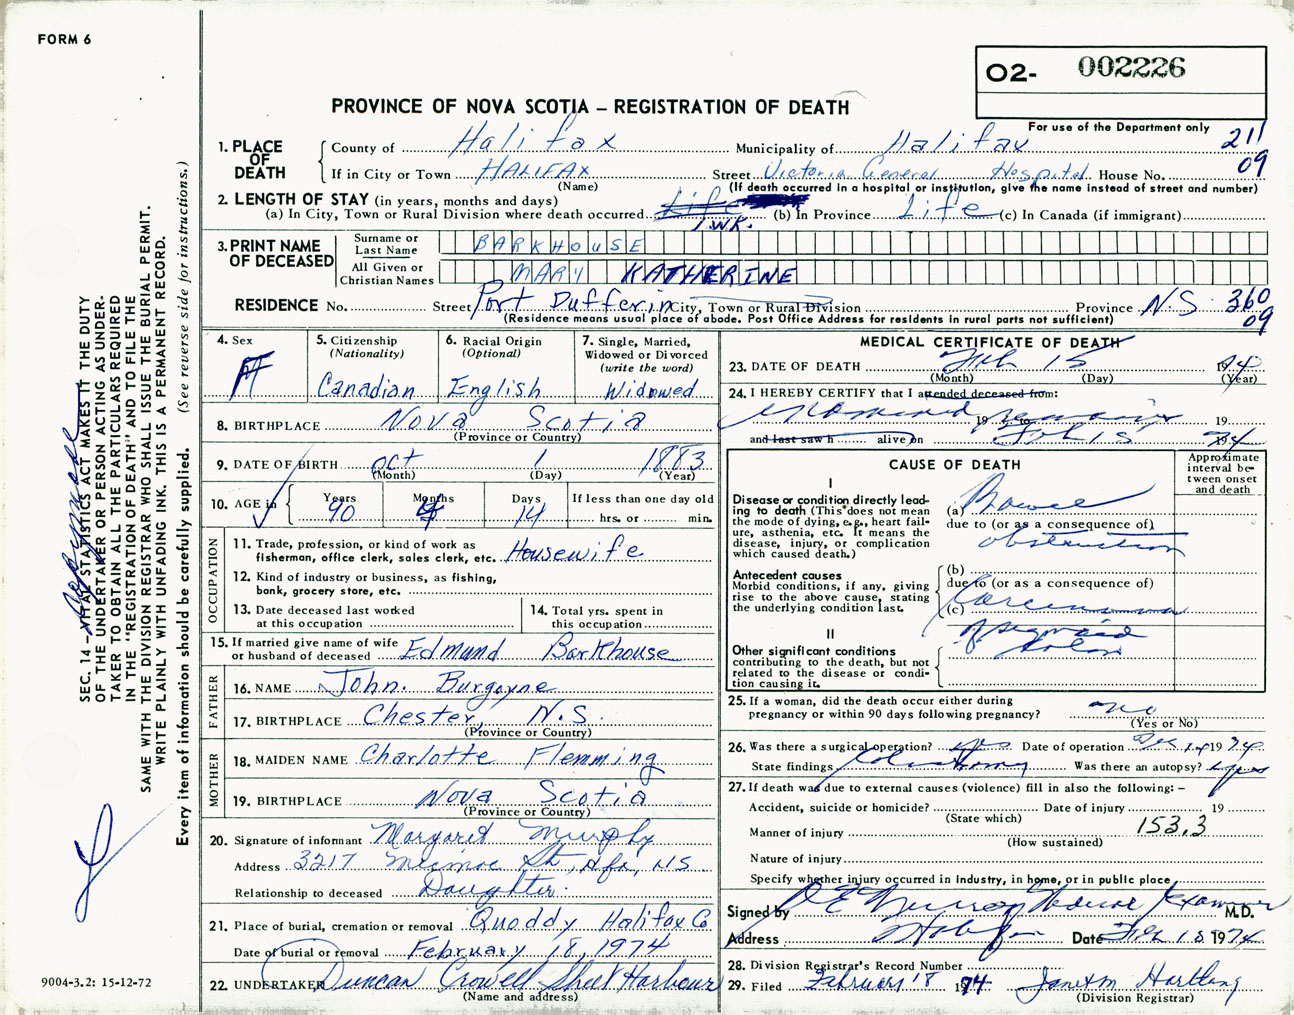 FORM 6
O2- 002226
PROVINCE OF NOVA SCOTIA – REGISTRATION OF DEATH
For use of the Department only
211
09
1. PLACE OF DEATH
County of Halifax Municipality of Halifax
If in City or Town HALIFAX Street Victoria General Hospital House No.
(Name) (If death occurred in a hospital or institution, give the name instead of street and number)
2. LENGTH OF STAY (in years, months and days)
(a) In City, Town or Rural Division where death occurred Life (b) In Province Life (c) In Canada (if immigrant)
1 WK.
3. PRINT NAME OF DECEASED
Surname or Last Name BARKHOUSE
All Given or Christian Names MARY KATHERINE
RESIDENCE No. Street Port Dufferin City, Town or Rural Division Province N.S. 360
09
(Residence means usual place of abode. Post Office Address for residents in rural parts not sufficient)
4. Sex F
5. Citizenship (Nationality) Canadian
6. Racial Origin (Optional) English
7. Single, Married, Widowed or Divorced (write the word) Widowed
8. BIRTHPLACE Nova Scotia
(Province or Country)
9. DATE OF BIRTH Oct 1 1883
(Month) (Day) (Year)
10. AGE in Years 90 Months 4 Days 14 If less than one day old hrs. or min.
OCCUPATION
11. Trade, profession, or kind of work as fisherman, office clerk, sales clerk, etc. Housewife
12. Kind of industry or business, as fishing, bank, grocery store, etc.
13. Date deceased last worked at this occupation
14. Total yrs. spent in this occupation
15. If married give name of wife or husband of deceased Edmund Barkhouse
FATHER
16. NAME John. Burgoyne
17. BIRTHPLACE Chester, N.S.
(Province or Country)
MOTHER
18. MAIDEN NAME Charlotte Flemming
19. BIRTHPLACE Nova Scotia
(Province or Country)
20. Signature of informant Margaret Murphy
Address 3217 St, Hfx, N.S.
Relationship to deceased Daughter.
21. Place of burial, cremation or removal Quoddy Halifax Co
Date of burial or removal February 18, 1974
22. UNDERTAKER Duncan Crowell Sheet Harbour
(Name and address)
MEDICAL CERTIFICATE OF DEATH
23. DATE OF DEATH Feb 15 1974
(Month) (Day) (Year)
24. I HEREBY CERTIFY that I attended deceased from:
examined 19 to remains 19
and last saw h alive on Feb 15 74
CAUSE OF DEATH
Approximate interval between onset and death
I
Disease or condition directly leading to death (This does not mean the mode of dying, e.g., heart failure, asthenia, etc. It means the disease, injury, or complication which caused death.)
(a) Bowel
due to (or as a consequence of)
obstruction
Antecedent causes
Morbid conditions, if any, giving rise to the above cause, stating the underlying condition last.
(b)
due to (or as a consequence of)
(c) Carcinoma
of sigmoid
colon
II
Other significant conditions
contributing to the death, but not related to the disease or condition causing it.
25. If a woman, did the death occur either during pregnancy or within 90 days following pregnancy? no
(Yes or No)
26. Was there a surgical operation? yes Date of operation 1974
State findings Colostomy Was there an autopsy? yes
27. If death was due to external causes (violence) fill in also the following: –
Accident, suicide or homicide? Date of injury 19
(State which)
Manner of injury 153.3
(How sustained)
Nature of injury
Specify whether injury occurred in industry, in home, or in public place
Signed by Medical Examiner M.D.
Address Halifax Date Feb 18 1974
28. Division Registrar's Record Number
29. Filed February 18 1974 Hartling
(Division Registrar)
SEC. 14 – VITAL STATISTICS ACT MAKES IT THE DUTY
OF THE UNDERTAKER OR PERSON ACTING AS UNDER-
TAKER TO OBTAIN ALL THE PARTICULARS REQUIRED
IN THE "REGISTRATION OF DEATH" AND TO FILE THE
SAME WITH THE DIVISION REGISTRAR WHO SHALL ISSUE THE BURIAL PERMIT.
WRITE PLAINLY WITH UNFADING INK. THIS IS A PERMANENT RECORD.
Every item of information should be carefully supplied. (See reverse side for instructions.)
9004-3.2: 15-12-72